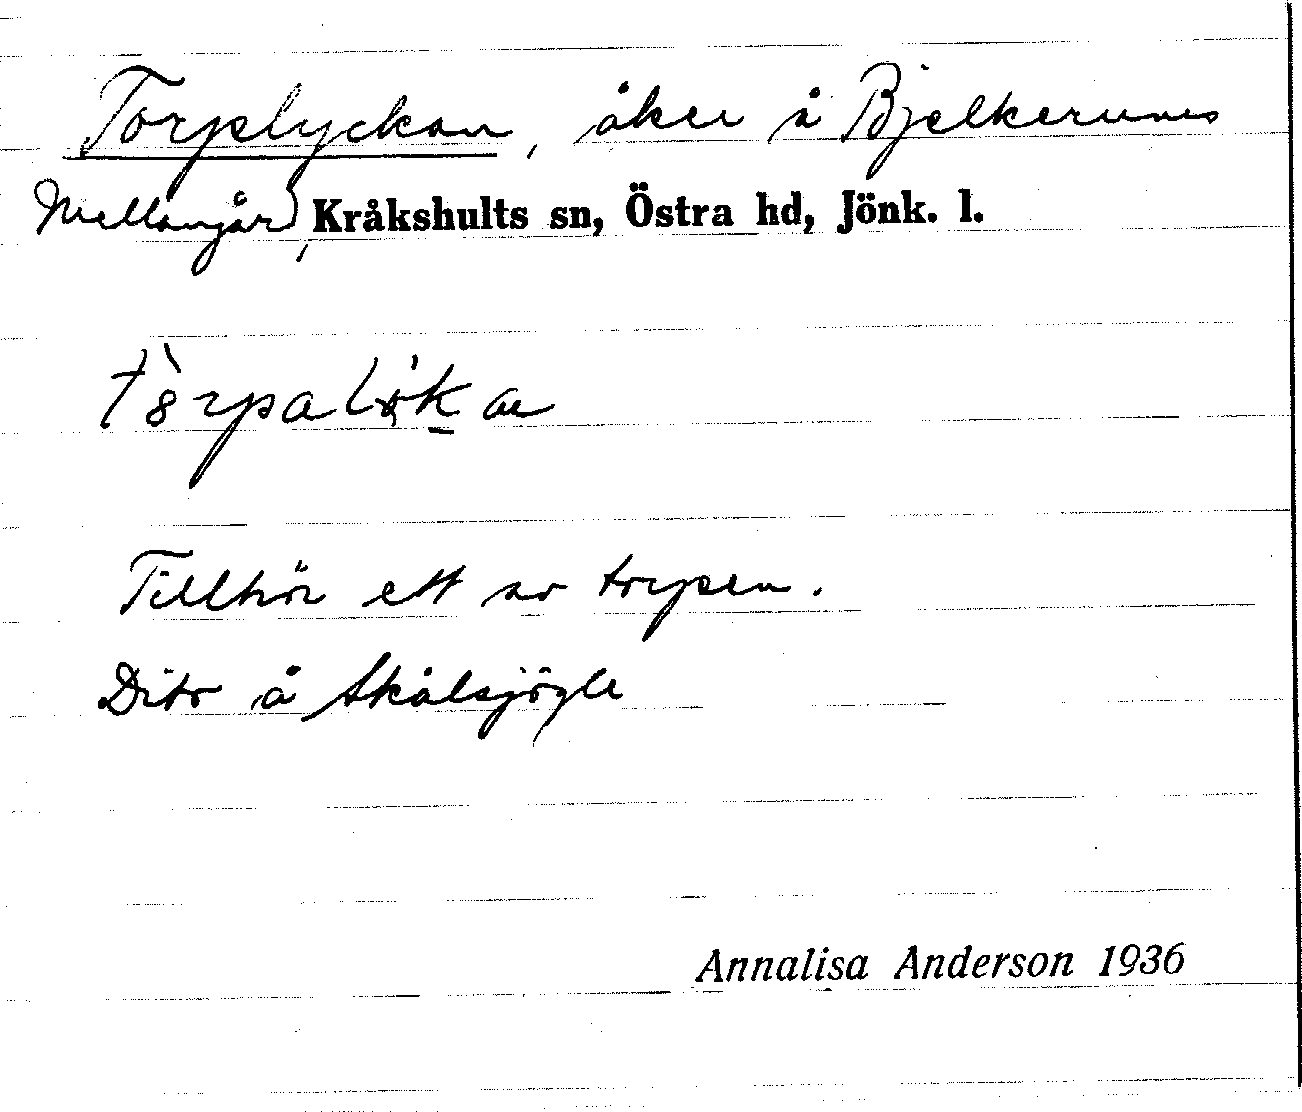 Torplyckan, åker å Bjelkerums
Mellangår), Kråkshults sn, Östra hd, Jönk. l.
Tillhör ett av torpen.
Dito å Skålsjögle
Annalisa Anderson 1936